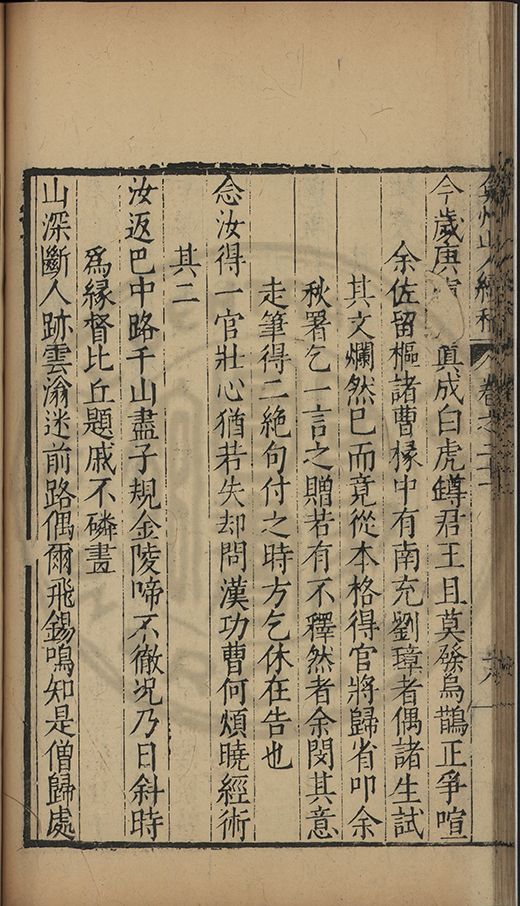 弇州山人續稿 卷之二十
今歲庚 真成白虎鐏君王且莫發烏鵲正爭喧
余佐留樞諸曹椽中有南充劉璋者偶諸生試
其文爛然巳而竟從本格得官將歸省叩余
秋署乞一言之贈若有不釋然者余閔其意
走筆得二絶句付之時方乞休在告也
念汝得一官壯心猶若失却問漢功曹何煩曉經術
其二
汝返巴中路千山盡子規金陵啼不徹况乃日斜時
爲緣督比丘題戚不磷畫
山深斷人跡雲滃迷前路偶爾飛錫鳴知是僧歸處